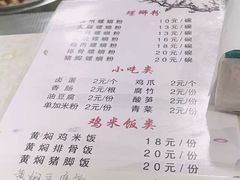 螺蛳粉
螺蛳粉 10元/碗
螺蛳粉 13元/碗
螺蛳粉 13元/碗
螺蛳粉 18元/碗
排骨螺蛳粉 18元/碗
猪脚螺蛳粉 18元/碗
小吃类
卤蛋 2元/个 鸡爪 2元/个
香肠 2元/根 腐竹 2元/份
油豆腐 2元/份 酸笋 2元/份
单加米粉 2元/份 青菜 2元/份
鸡米饭类
黄焖鸡米饭 18元/份
黄焖排骨饭 20元/份
黄焖猪脚饭 20元/份